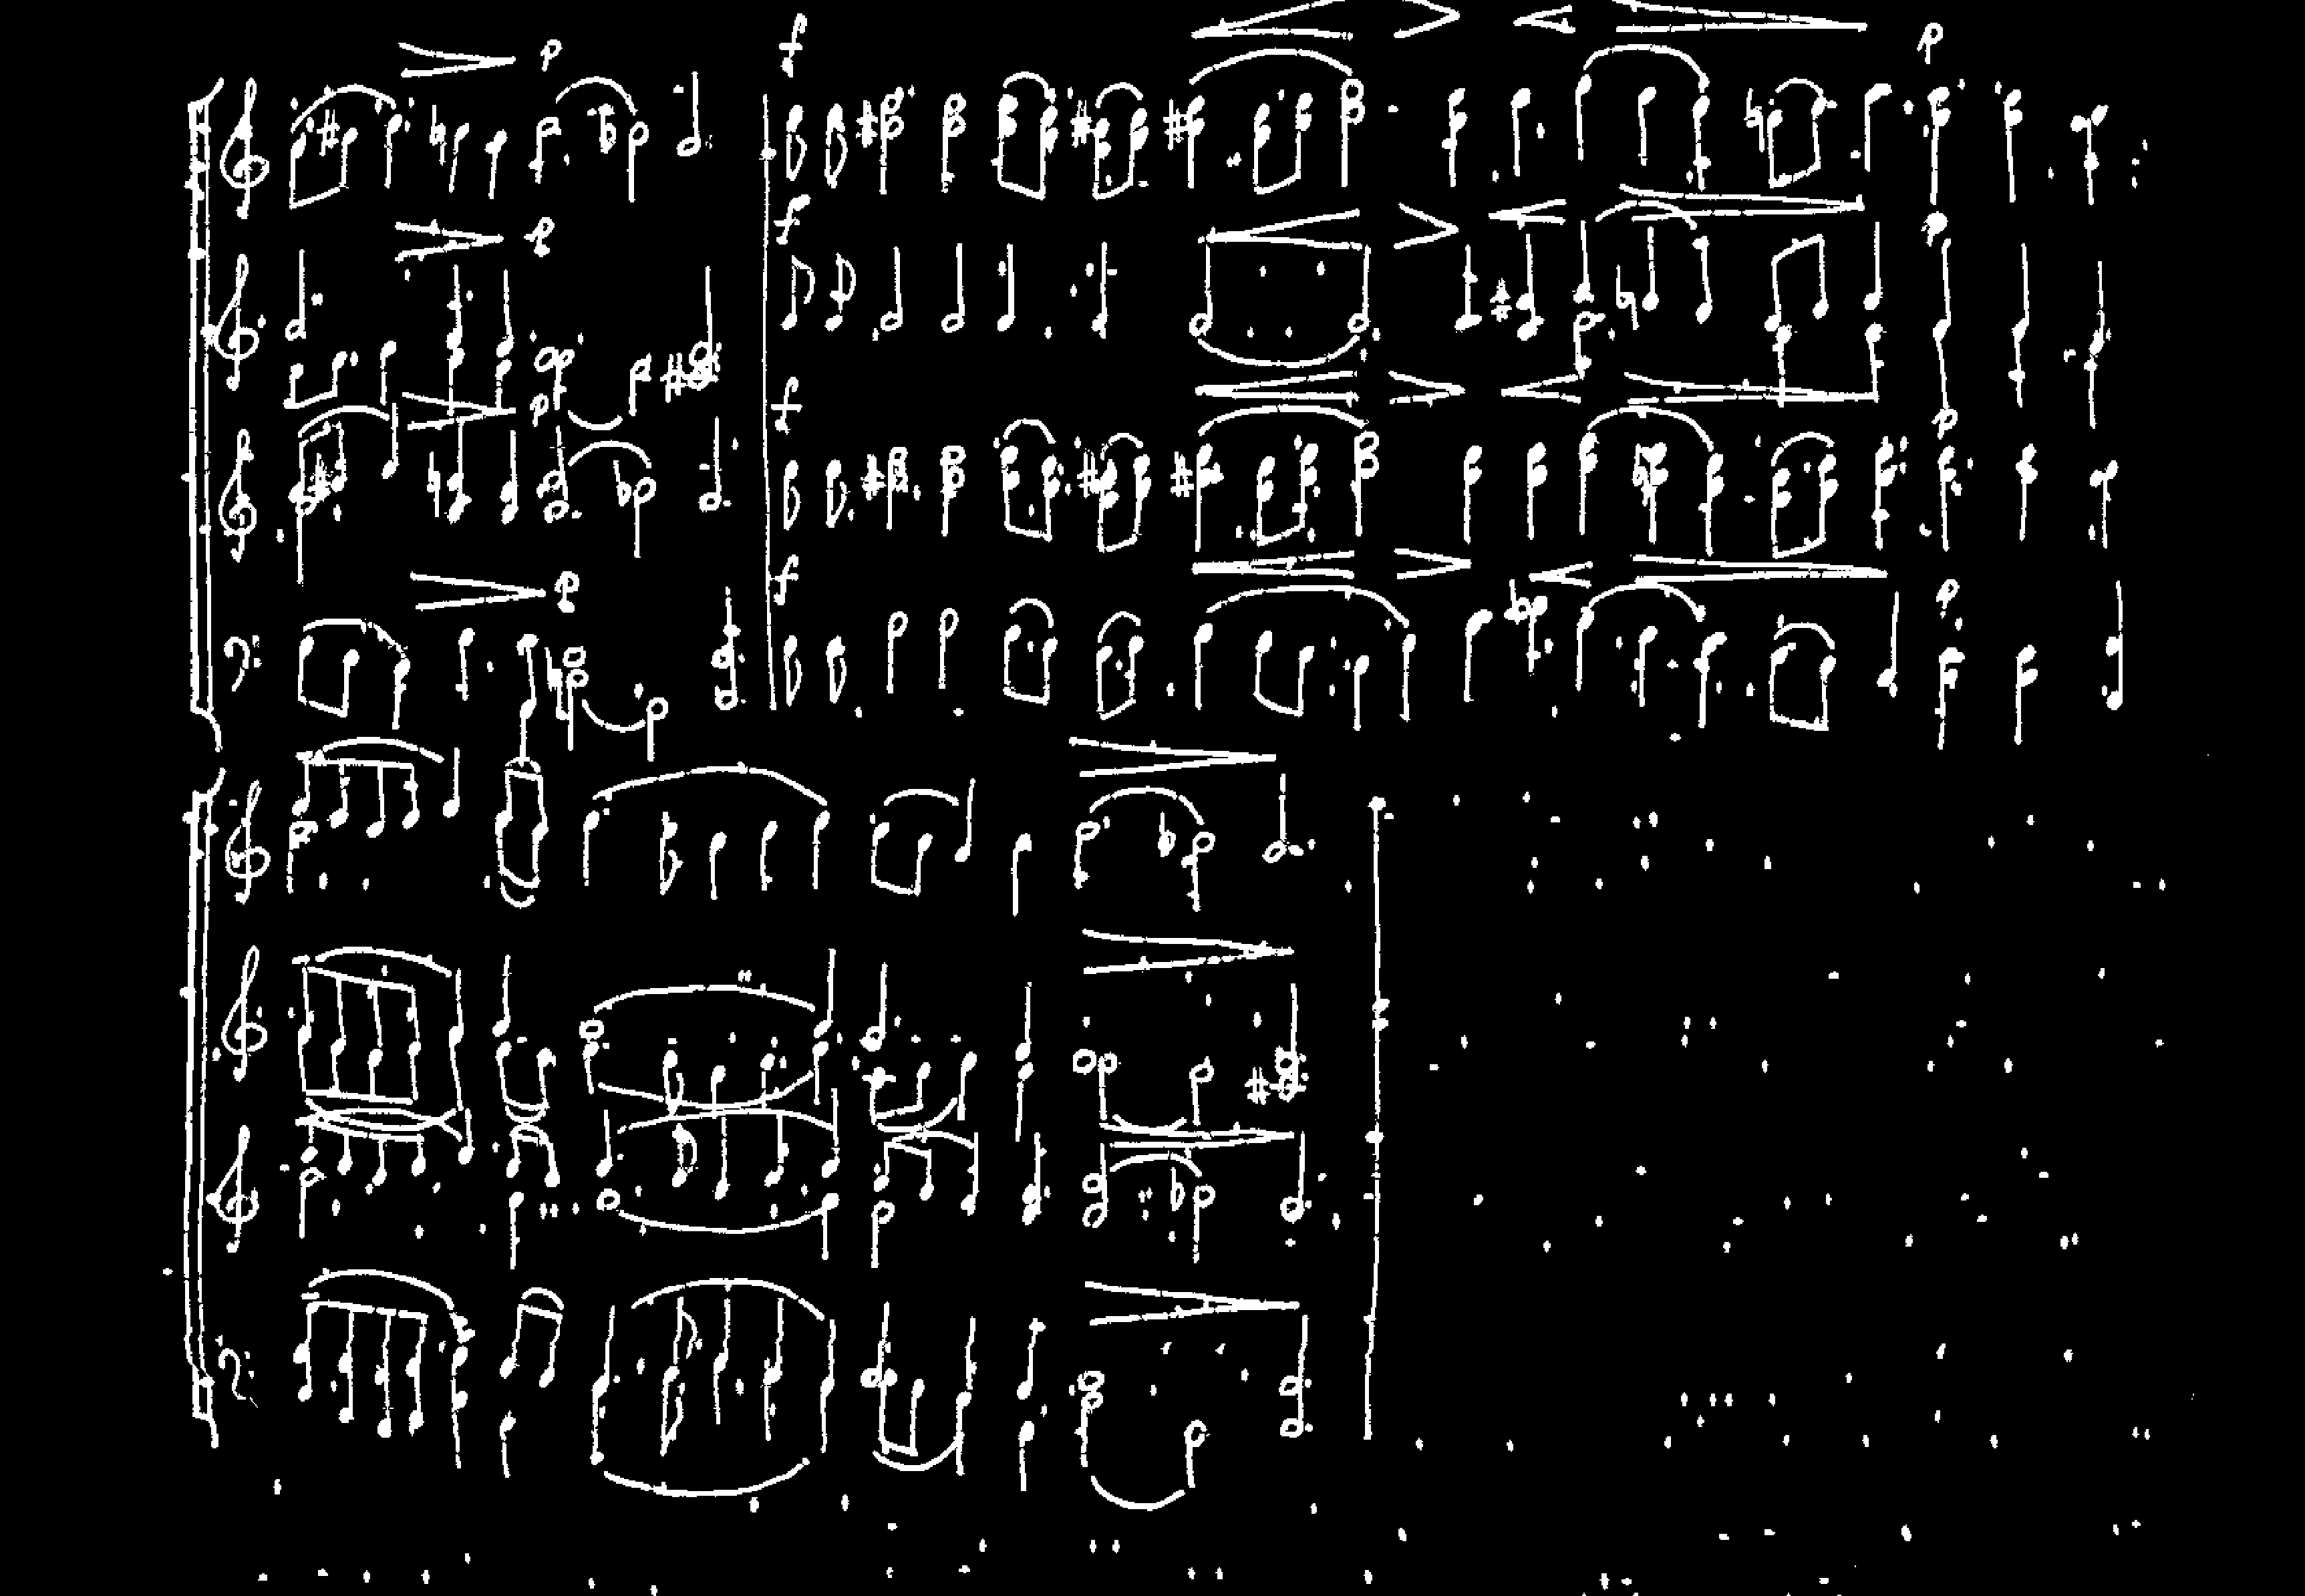 p f p
p f p
p f p
p f p